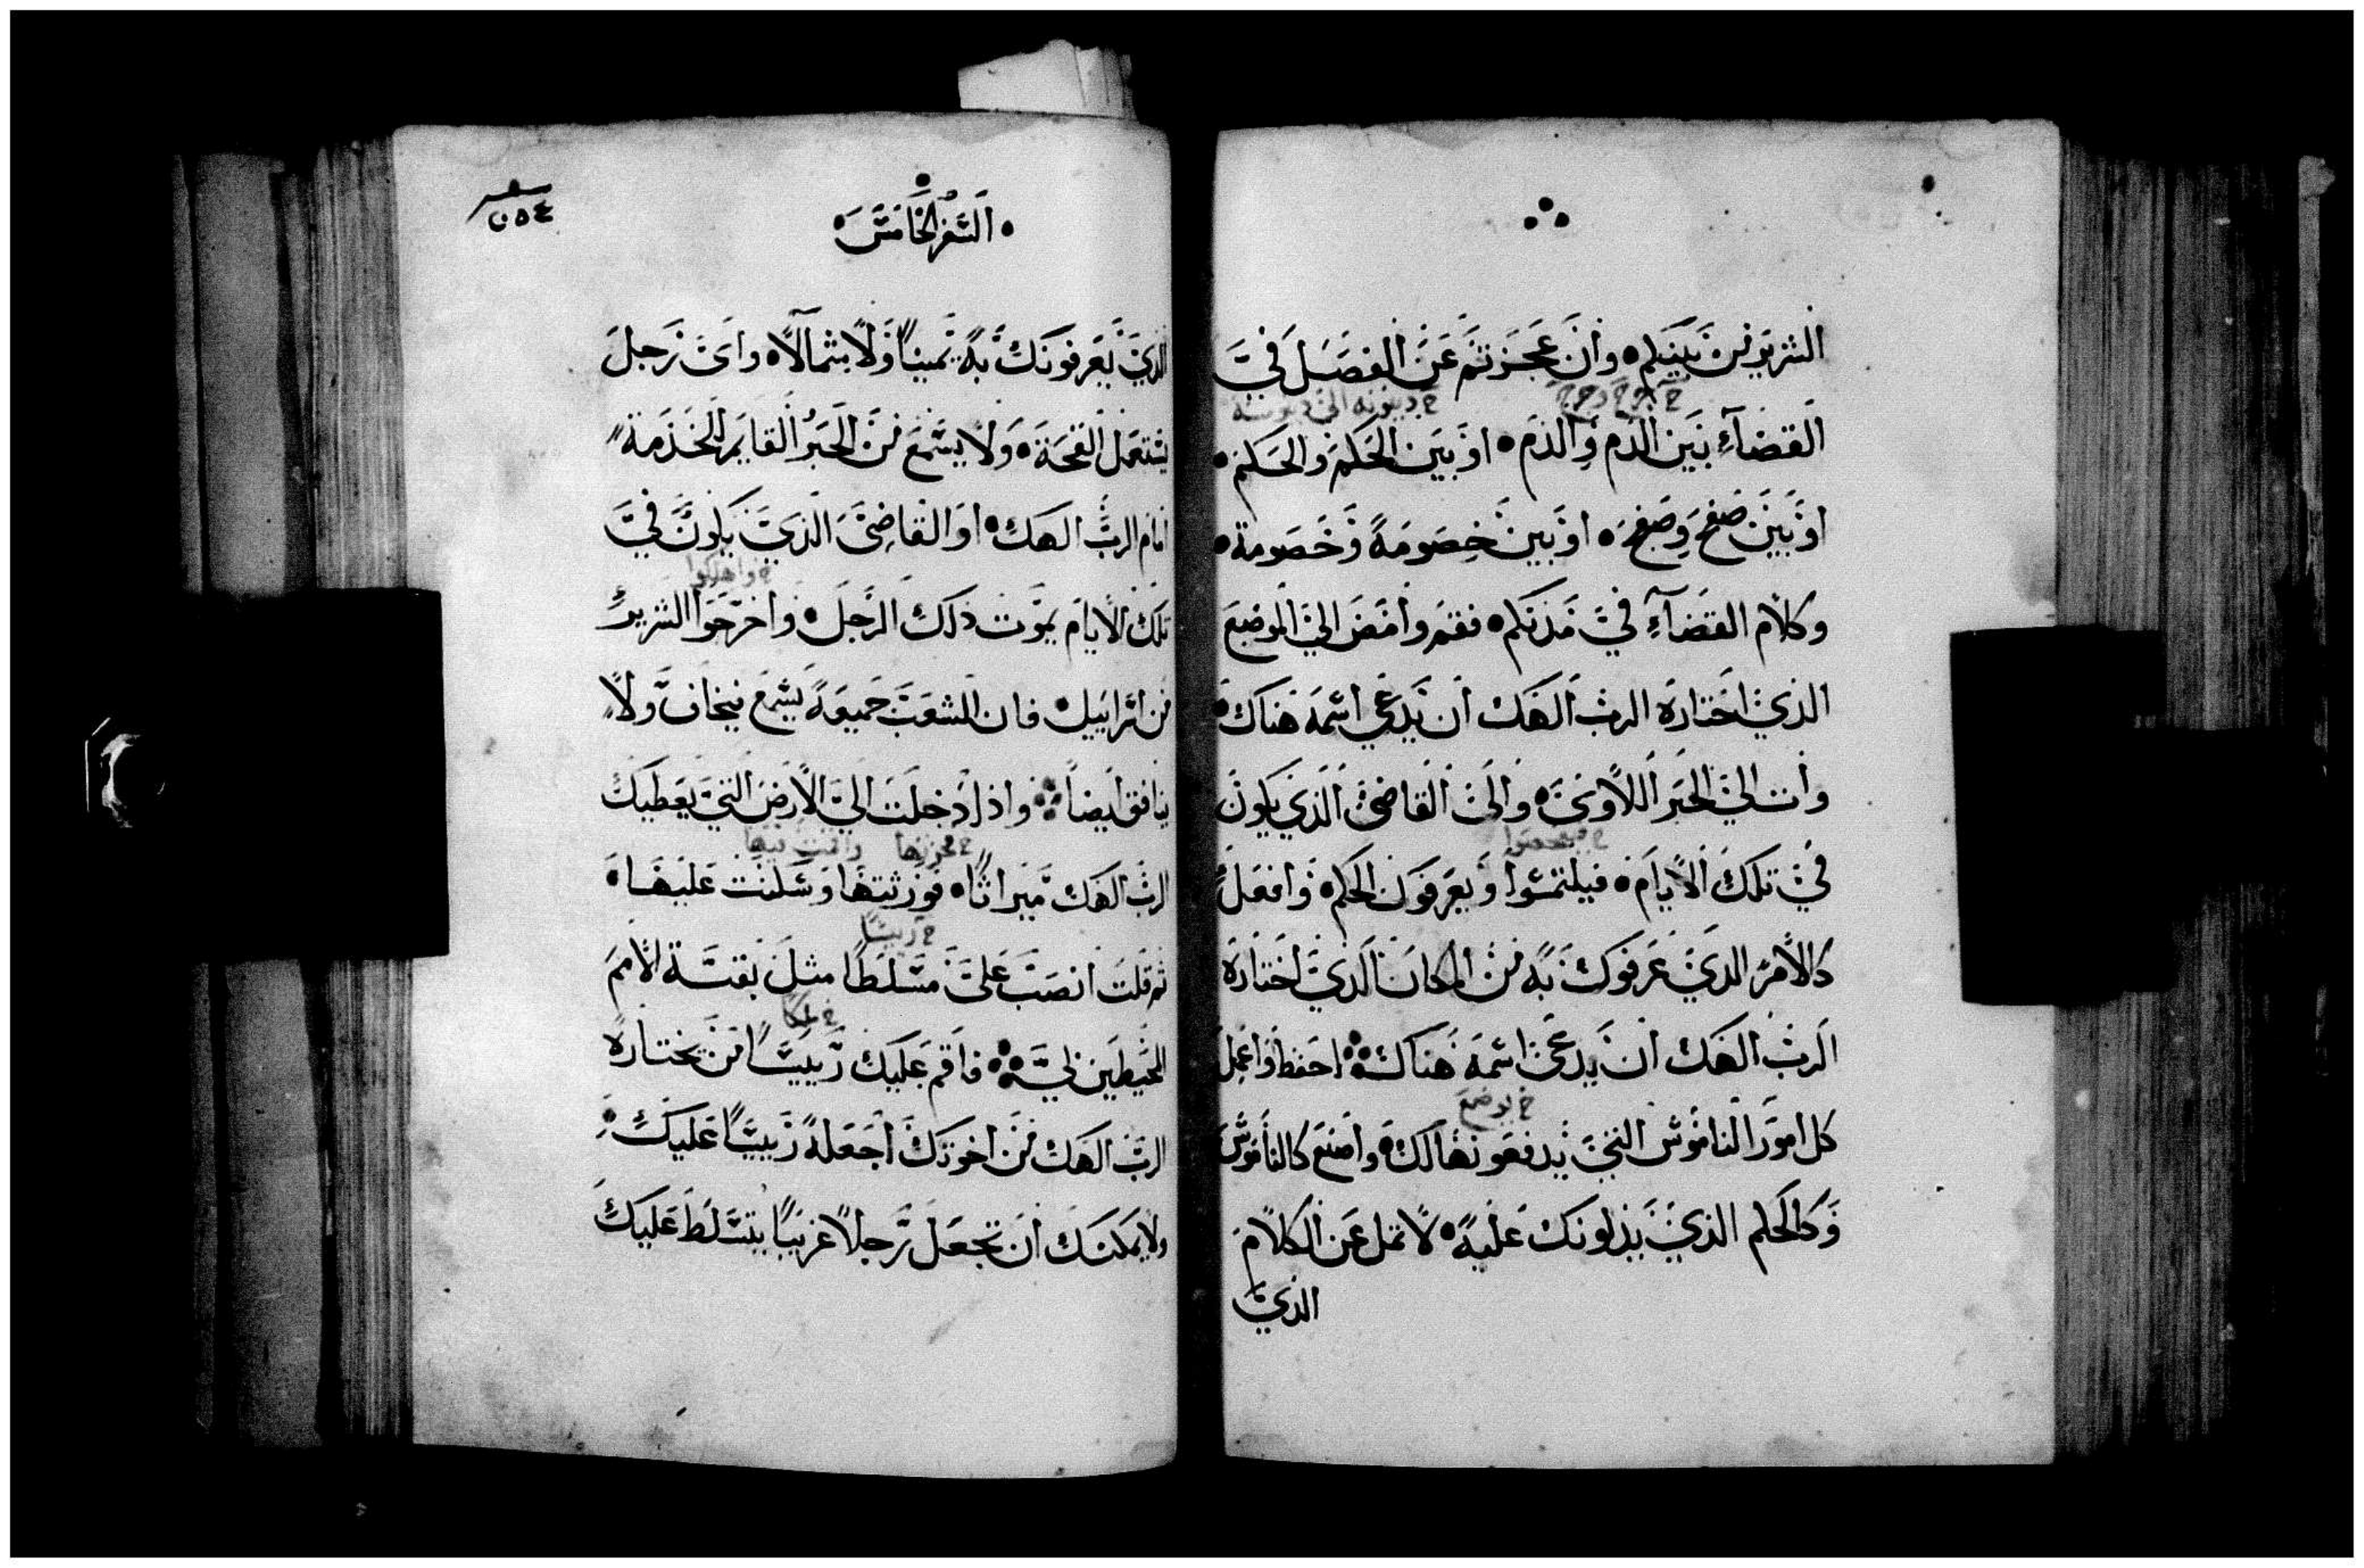 الشريرين بينكم وان عجزتم عن الفصل في
القضآء بين الدم والدم او بين الحكم والحكم
او بين صفح وصفح او بين خصومة وخصومة
وكلام القضآء في مدنكم فقم وامض الي الموضع
الذي اختاره الرب الهك ان يدعي اسمه هناك
وات الي الحبر اللاوي والي القاضي الذي يكون
في تلك الايام فيلتمسوا ويعرفون الحكم وافعل
كالامر الذي عرفوك به من المكان الذي اختاره
الرب الهك ان يدعي اسمه هناك احفظ واعمل
كل امور الناموس التي يدفعونها لك واصنع كالناموس
وكالحكم الذي يدلونك عليه لا تمل عن الكلام
الذي
السفر الخامس
الذي يعرفونك به يمينا ولا شمالا واي رجل
يستعمل القحة ولا يسمع من الحبر القايم للخدمة
امام الرب الهك او القاضي الذي يكون في
تلك الايام يموت ذلك الرجل واخرجوا الشرير
خ واهلكوا
من اسراييل فان الشعب جميعه يسمع فيخاف ولا
ينافق ايضا واذا دخلت الي الارض التي يعطيك
الرب الهك ميراثا فورثتها وسكنت عليها
ثم قلت انصب علي مسلطا مثل بقية الامم
خ رييسا
المحيطين بي فاقم عليك رييسا من يختاره
خ ملكا
الرب الهك من اخوتك اجعله رييسا عليك
ولا يمكنك ان تجعل رجلا غريبا يتسلط عليك